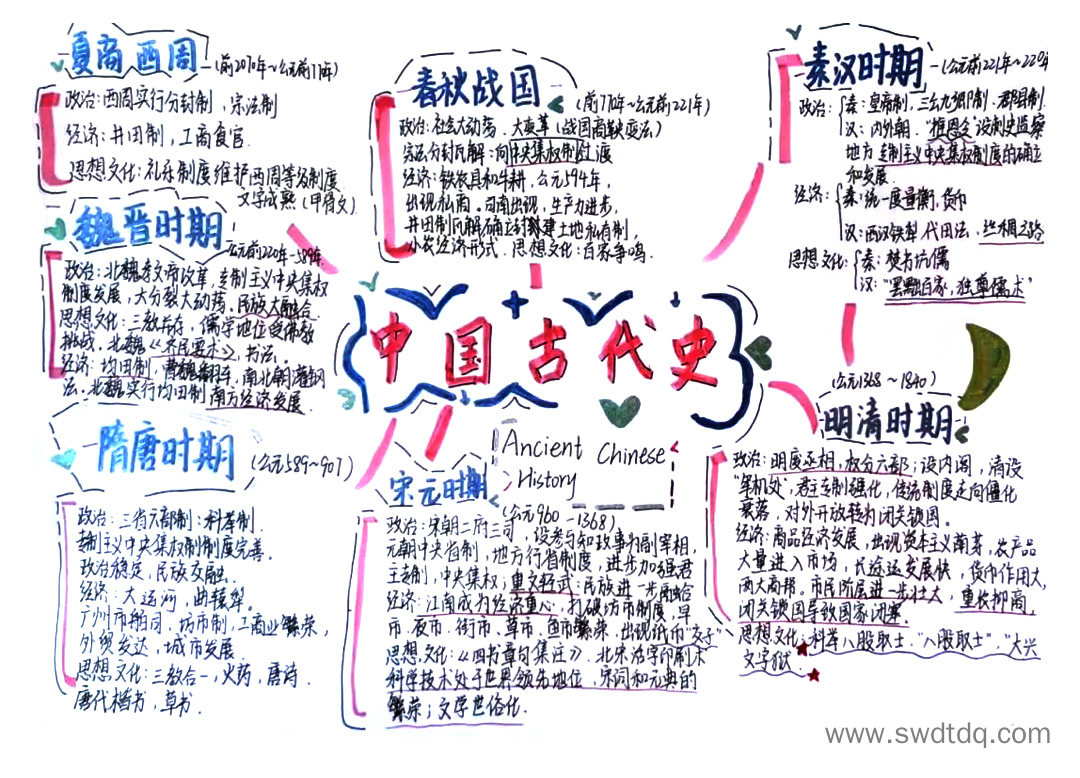 夏商西周
(前2070年~公元前771年)
政治:西周实行分封制,宗法制
经济:井田制,工商食官.
思想文化:礼乐制度维护西周等级制度
文字成熟(甲骨文)
春秋战国
(前770年~公元前221年)
政治:社会大动荡.大变革(战国商鞅变法)
宗法分封瓦解:向中央集权制过渡
经济:铁农具和牛耕,公元594年,
出现私商,司南出现,生产力进步,
井田制瓦解确立封建土地私有制,
小农经济形式.思想文化:百家争鸣.
秦汉时期
(公元前221年~220年
政治:
秦:皇帝制,三公九卿制.郡县制.
汉:内外朝.“推恩令”设刺史监察
地方专制主义中央集权制度的确立
和发展
经济:
秦:统一度量衡,货币
汉:西汉铁犁代田法,丝绸之路
思想文化:
秦:焚书坑儒
汉:“罢黜百家,独尊儒术”
魏晋时期
公元前220年-589年.
政治:北魏孝文帝改革,专制主义中央集权
制度发展,大分裂大动荡.民族大融合.
思想文化:三教并存,儒学地位受佛教
挑战,北魏《齐民要术》,书法.
经济:均田制,曹魏翻车,南北朝灌钢
法.北魏实行均田制南方经济发展.
中国古代史
Ancient Chinese
History
隋唐时期
(公元589~907)
政治:三省六部制:科举制.
专制主义中央集权制制度完善.
政治稳定,民族交融.
经济:大运河,曲辕犁.
广州市舶司.坊市制,工商业繁荣,
外贸发达,城市发展.
思想文化:三教合一,火药,唐诗.
唐代楷书,草书.
宋元时期
(公元960-1368)
政治:宋朝二府三司,设参与知政事为副宰相,
元朝中央省制,地方行省制度,进步加强君
主专制,中央集权,重文轻武:民族进一步融合
经济:江南成为经济重心,打破坊市制度,早
市.夜市.街市.草市.鱼市繁荣,出现纸币“交子”
思想.文化:《四书章句集注》.北宋活字印刷术
科学技术处于世界领先地位,宋词和元典的
繁荣;文学世俗化.
(公元1368~1840)
明清时期
政治:明废丞相,权分六部;设内阁,清设
“军机处”,君主专制强化,传统制度走向僵化
衰落,对外开放转为闭关锁国.
经济:商品经济发展,出现资本主义萌芽,农产品
大量进入市场,长途运发展快,货币作用大,
两大商帮.市民阶层进一步壮大,重农抑商.
闭关锁国导致国家闭塞.
思想文化:科举八股取士.“八股取士”,“大兴
文字狱.
www.swdtdq.com